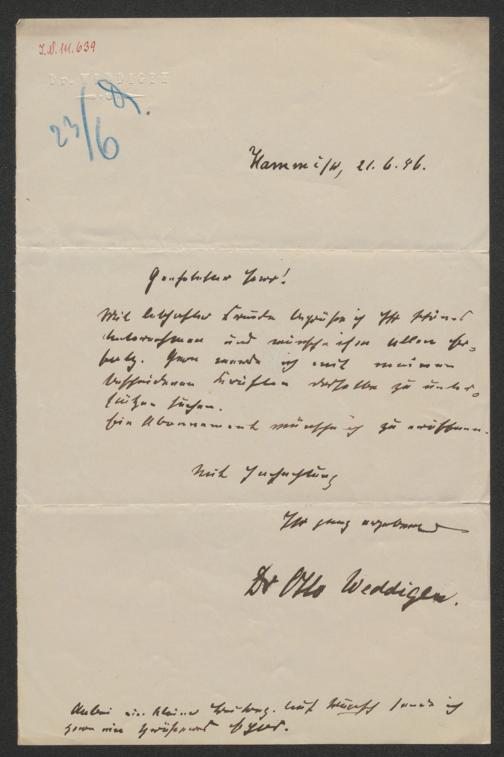 I.N. 111.639
DR. WEDDIGEN
23/6
Hamm i/W, 21.6.86.
Geehrter Herr!
Mit lebhafter Freude begrüße ich Ihr
Unternehmen und wünsche ihm allen Er-
folg. Gern werde ich mit meinen
bescheidenen Kräften dasselbe zu unter-
stützen suchen.
Ein Abonnement wünsche ich zu
Mit Hochachtung
Ihr ganz ergebener
Dr Otto Weddigen.
Anbei ein kleiner Beitrag. Auf Wunsch sende ich
gern ein größeres